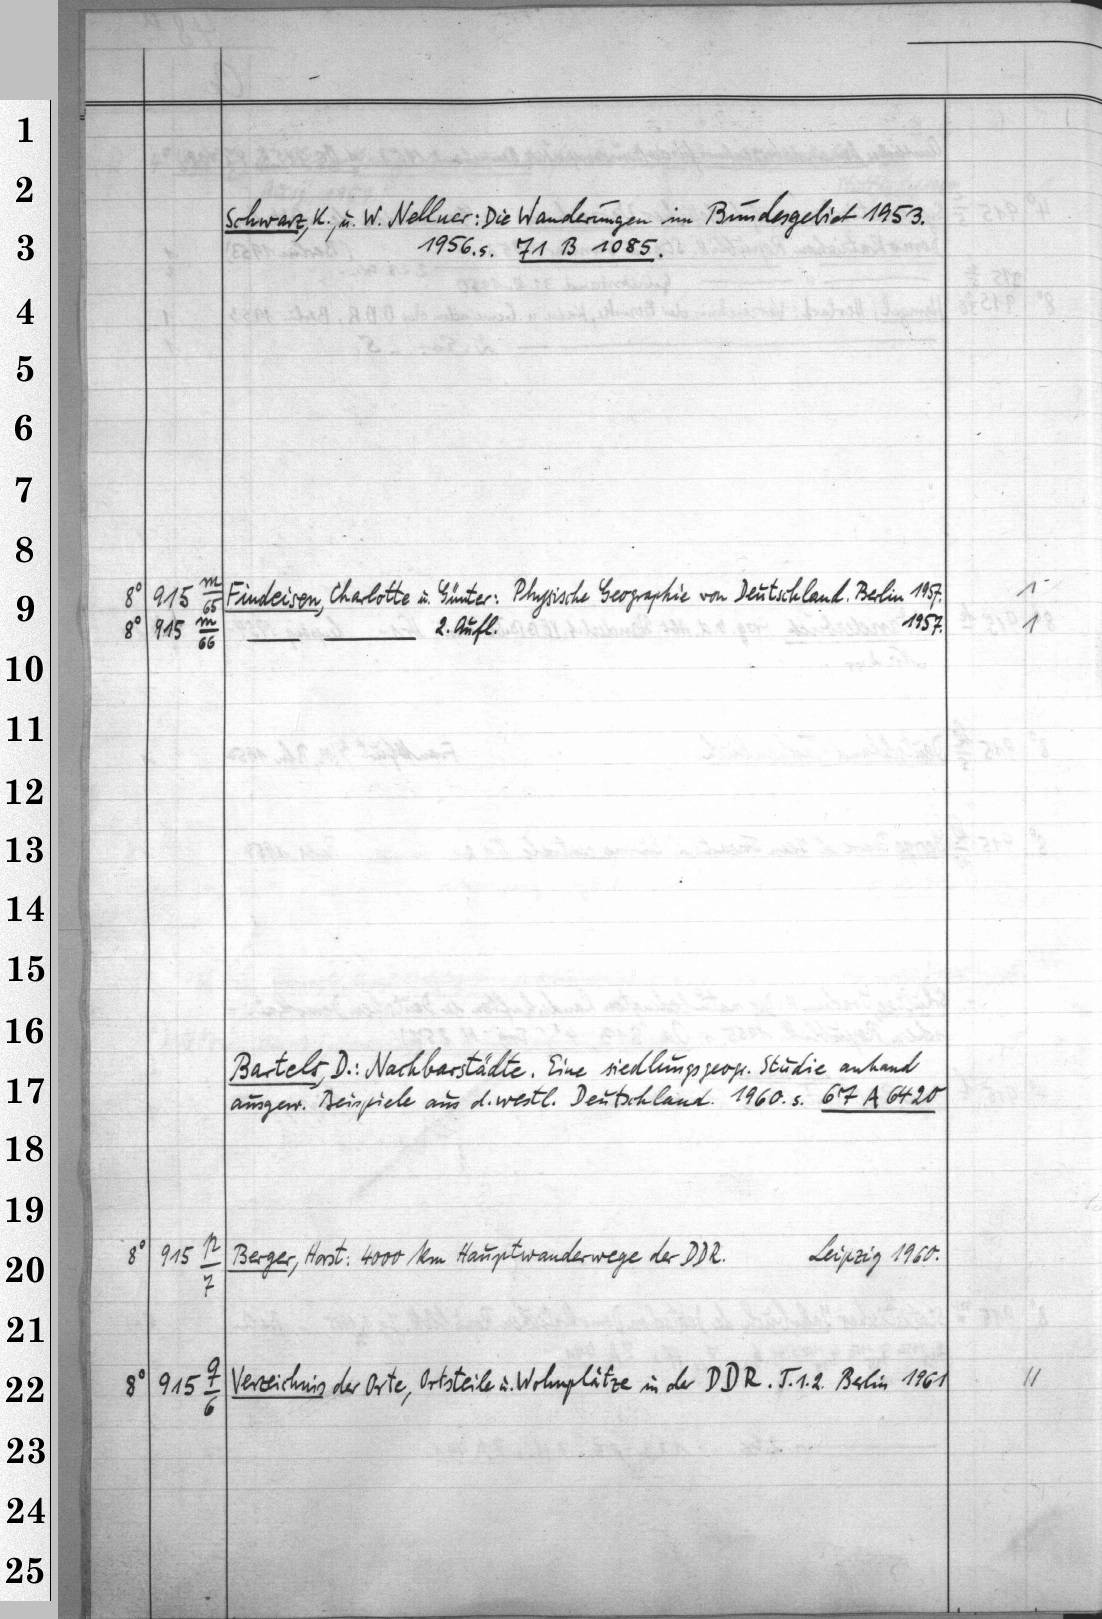 1
2
Schwarz, K., u. W. Nellner: Die Wanderungen im Bundesgebiet 1953.
3
1956. s. 71 B 1085.
4
5
6
7
8
9
8° 915 m/65 Findeisen, Charlotte u. Günter: Physische Geographie von Deutschland. Berlin 1957. 1
8° 915 m/66 — — 2. Aufl. 1957. 1
10
11
12
13
14
15
16
Bartels, D.: Nachbarstädte. Eine siedlungsgeogr. Studie anhand
17
ausgew. Beispiele aus d. westl. Deutschland. 1960. s. 67 A 6420
18
19
20
8° 915 p/7 Berger, Horst: 4000 km Hauptwanderwege der DDR. Leipzig 1960.
21
22
8° 915 q/6 Verzeichnis der Orte, Ortsteile u. Wohnplätze in der DDR. T.1.2. Berlin 1961 11
23
24
25